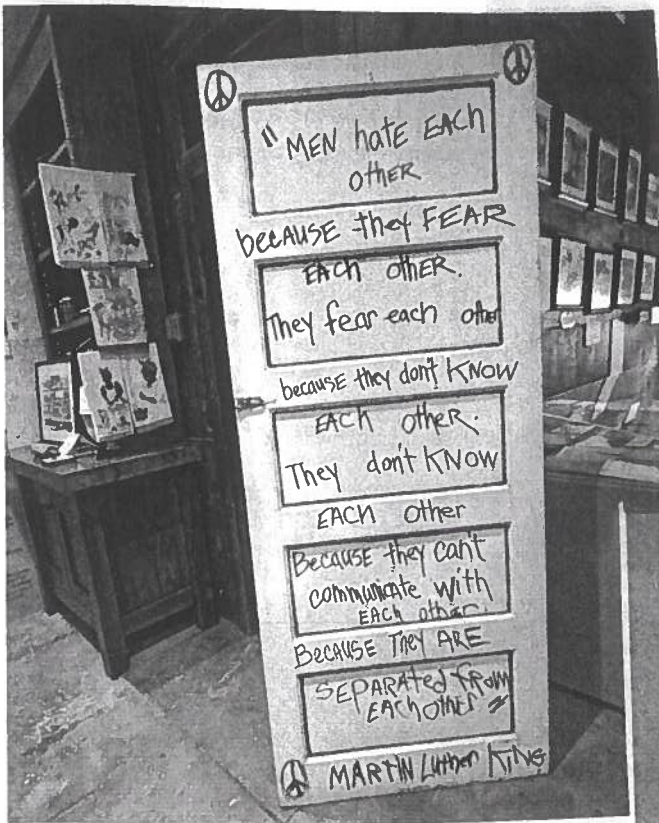 "MEN hatE EACh
othER
becAUSE they FEAR
EACh OthER.
They fear each other
because they don't KNOW
EACh OthER.
They don't KNOW
EACH Other
BecAUSE they can't
communicate with
EACh other.
BecAUSE ThEy ARE
SEPARAtEd fROM
EACh OthER"
MARTIN LuthER KING